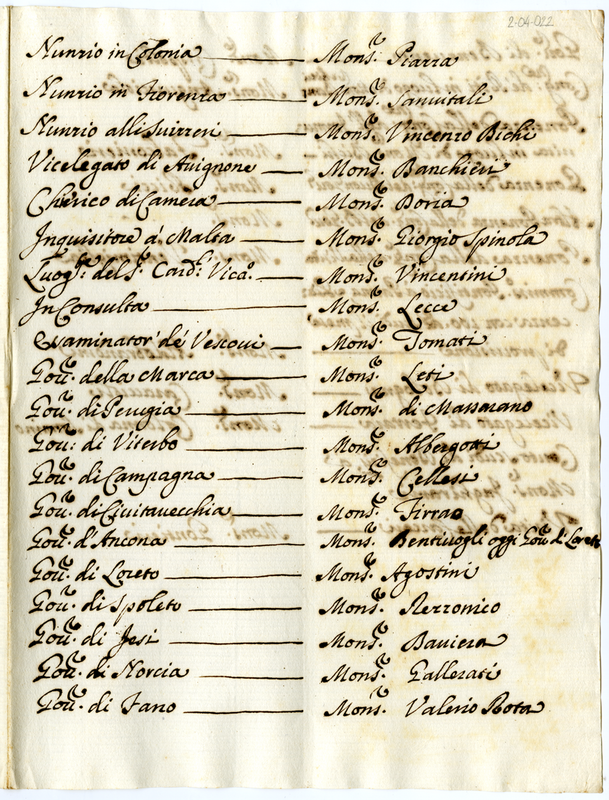 2-04-022
Nunzio in Colonia Mons.r Piazza
Nunzio in Fiorenza Mons.r Sanvitali
Nunzio alli Suizzeri Mons.r Vincenzo Bichi
Vicelegato di Avignone Mons.r Banchieri
Cherico di Camera Mons.r Doria
Inquisitore á Malta Mons.r Giorgio Spinola
Luog.te del S.r Card.l Vica.o Mons.r Vincentini
In Consulta Mons.r Lecce
Esaminator' dé Vescovi Mons.r Tomati
Gov.re della Marca Mons.r Leti
Gov.re di Perugia Mons.r di Massarano
Gov.re di Viterbo Mons.r Albergotti
Gov.re di Campagna Mons.r Cellesi
Gov.re di Civitavecchia Mons.r Firrao
Gov.re d'Ancona Mons.r Bentivogli oggi Gov.re di Loreto
Gov.re di Loreto Mons.r Agostini
Gov.re di Spoleto Mons.r Rezzonico
Gov.re di Jesi Mons.r Baviera
Gov.re di Norcia Mons.r Gallerati
Gov.re di Fano Mons.r Valerio Rota